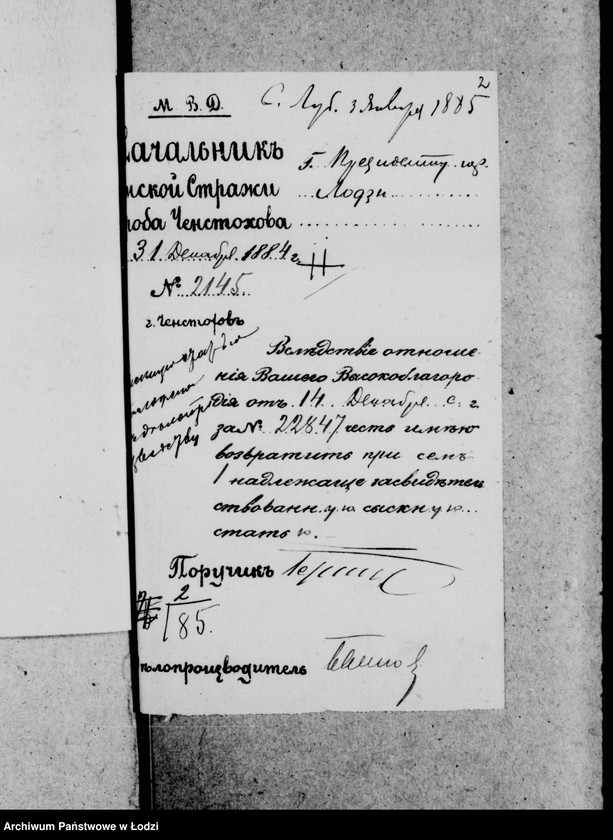 2
М. В. Д.
3 Января 1885
Начальникъ
Г. Президенту гор.
мской Стражи
Лодзи
рода Ченстохова
31 Декабря 1884 г.
№ 2145.
г. Ченстоховъ
Вслѣдствіе отноше-
нія Вашего Высокоблагоро-
дія отъ 14 Декабря с. г.
за № 22847 честь имѣю
возвратить при семъ
1 надлежаще засвидѣтель
ствованн.ую сыскную
статью.
Поручикъ
2
85.
ѣлопроизводитель
Archiwum Państwowe w Łodzi